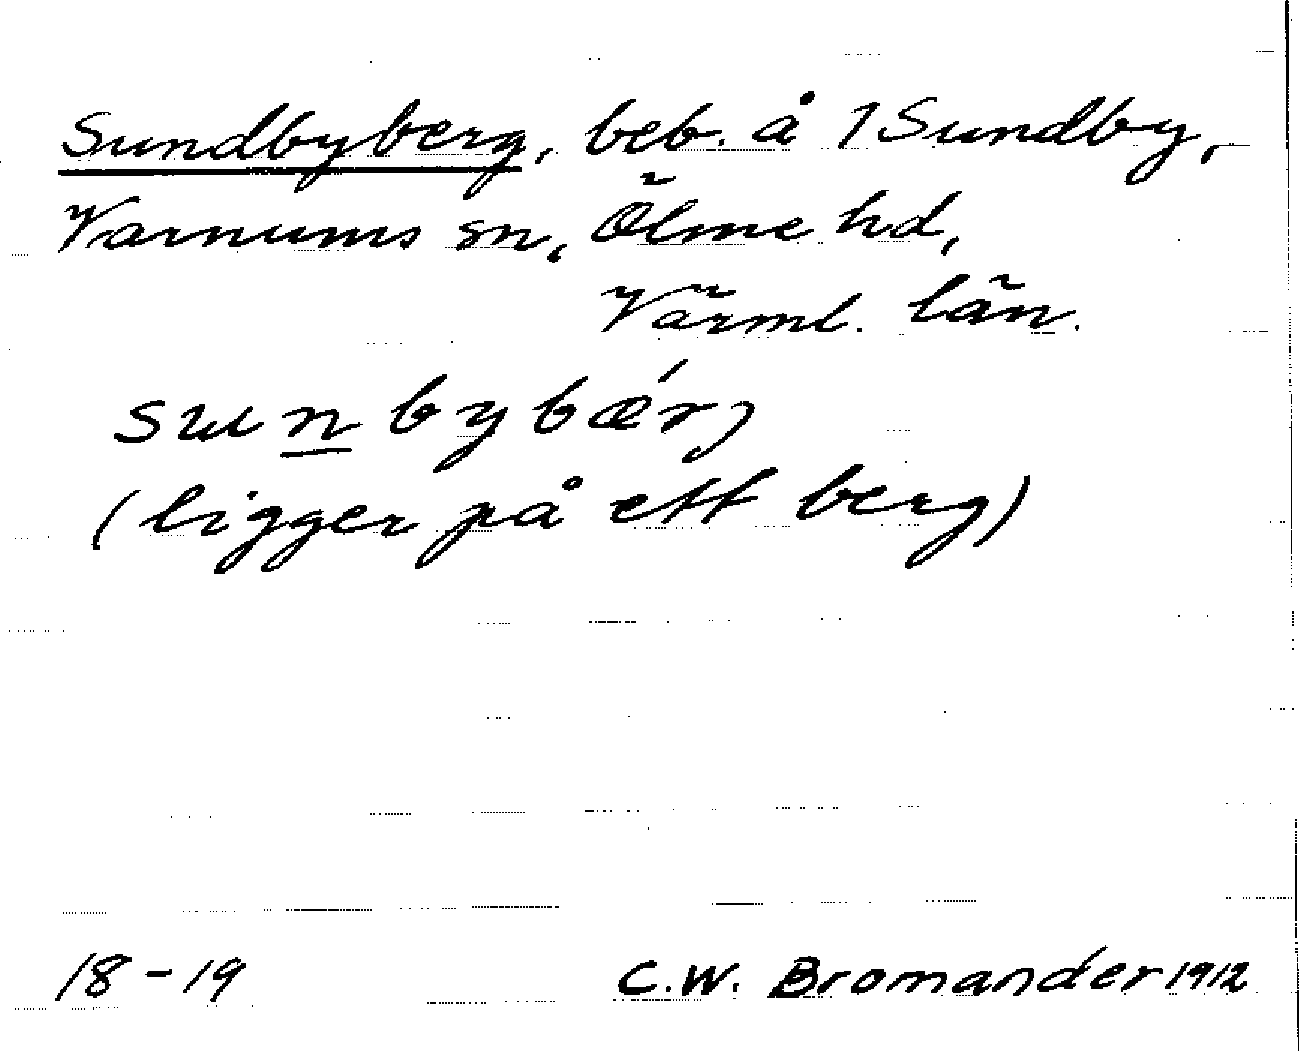 Sundbyberg, beb. å 1 Sundby,
Varnums sn, Ölme hd,
Värml. län.
sunbybǽrj
(ligger på ett berg)
18-19 C.W. Bromander 1912